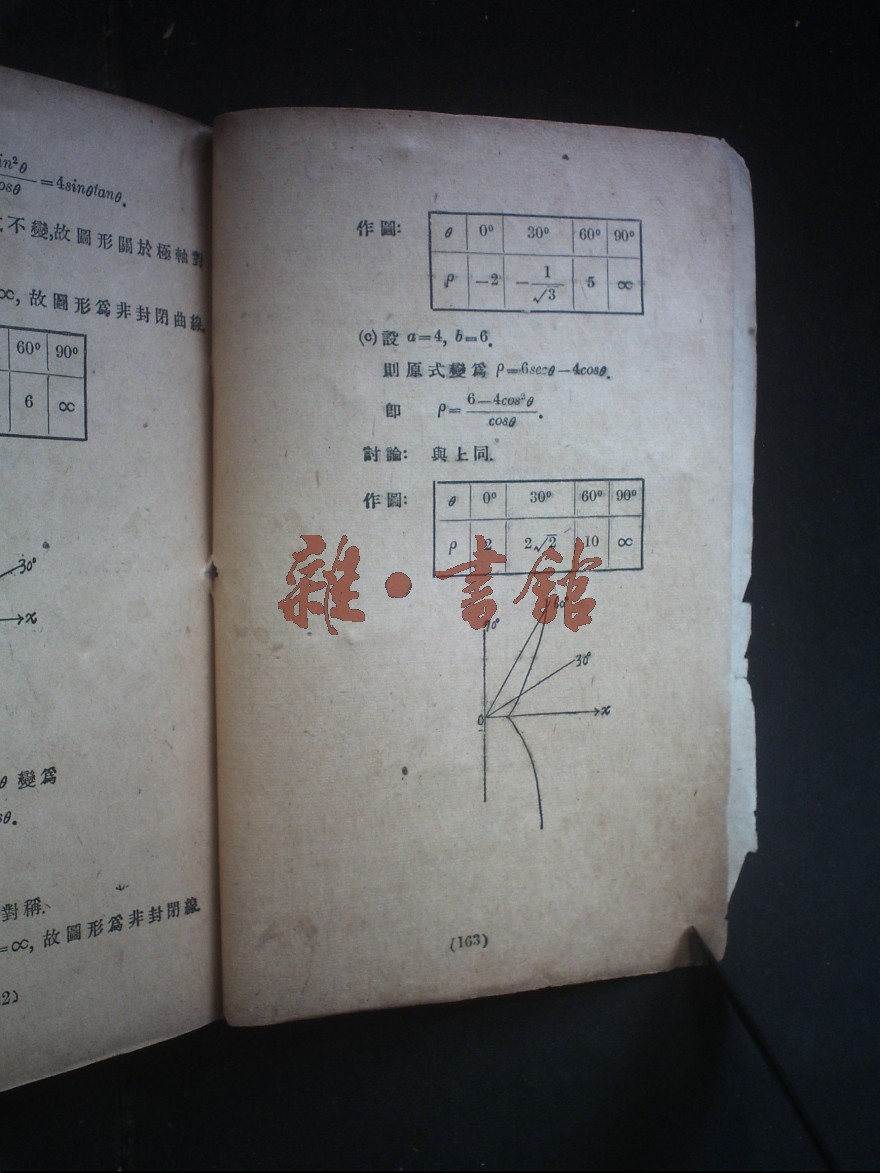 in²θ
osθ =4sinθtanθ.
不變,故圖形關於極軸對
∞, 故圖形爲非封閉曲線.
60° 90°
6 ∞
30°
x
θ 變爲
sθ.
對稱.
=∞, 故圖形爲非封閉線
2)
作圖: θ 0° 30° 60° 90°
ρ −2 −1/√3 5 ∞
(c) 設 a=4, b=6.
則原式變爲 ρ=6secθ−4cosθ.
即 ρ=(6−4cos²θ)/cosθ.
討論: 與上同.
作圖: θ 0° 30° 60° 90°
ρ 2 2√2 10 ∞
雜·書館
60°
90°
30°
0 x
(163)